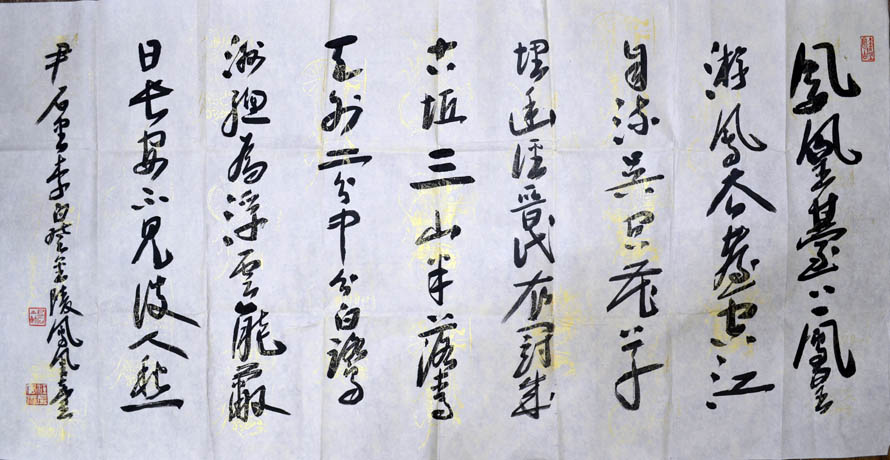 鳳凰臺上鳳凰
游鳳去臺空江
自流吳宮花草
埋幽徑晉代衣冠成
古坵三山半落青
天外二水中分白鷺
洲總為浮雲能蔽
日長安不見使人愁
尹石書李白登金陵鳳凰臺